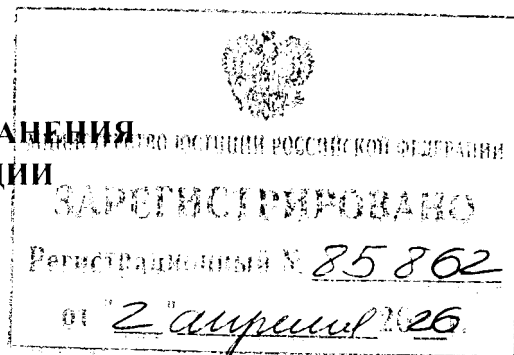 АНЕНИЯ
МИНИСТЕРСТВО ЮСТИЦИИ РОССИЙСКОЙ ФЕДЕРАЦИИ
ЦИИ
ЗАРЕГИСТРИРОВАНО
Регистрационный № 85862
от "2" апреля 2026.